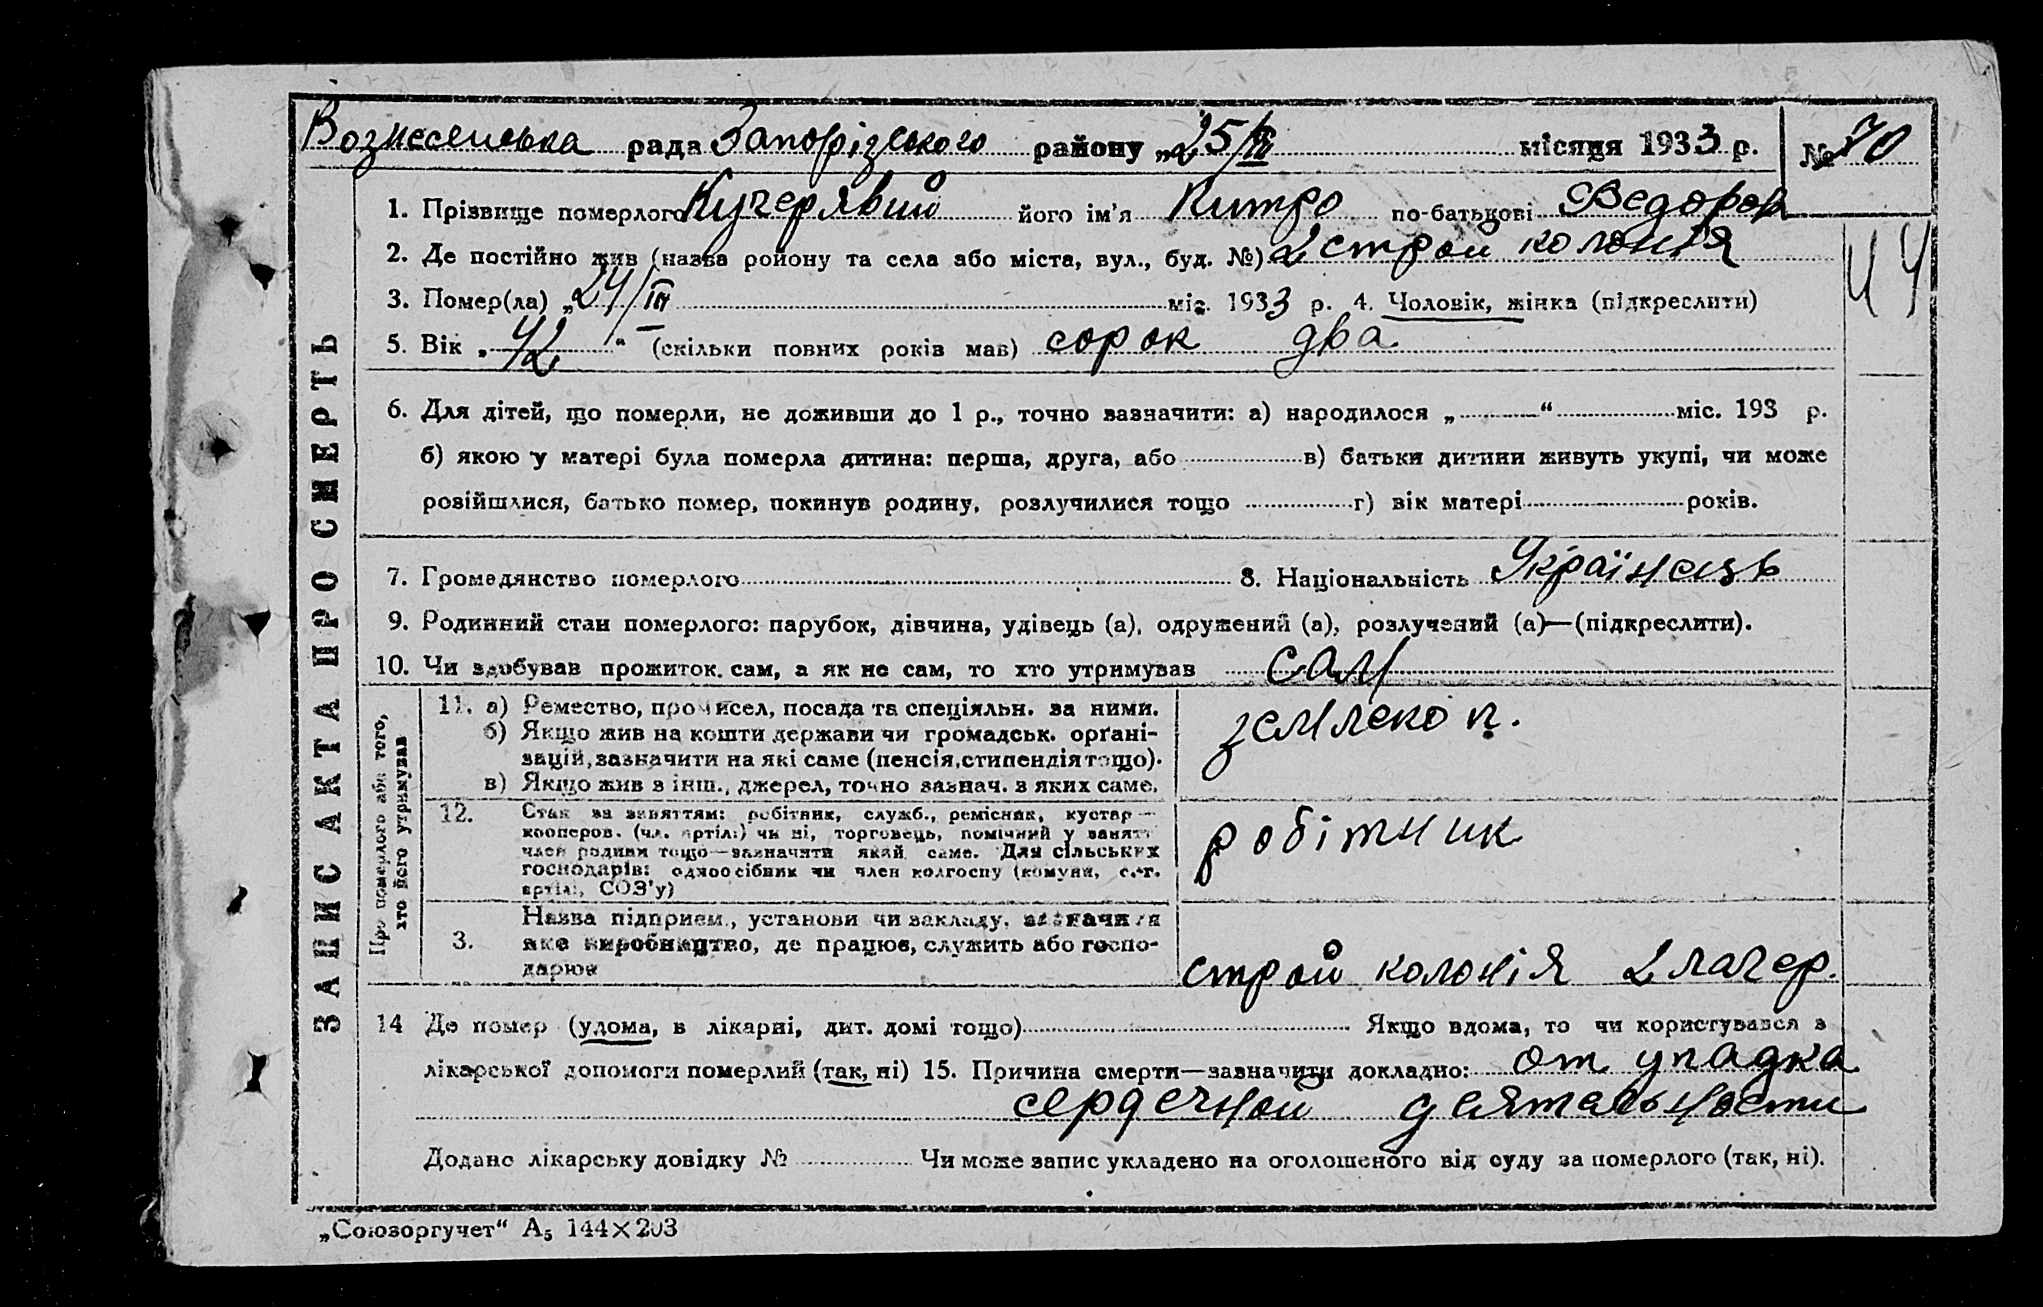 Вознесенська рада Запорізького району „25/III місяця 1933 р. № 70
1. Прізвище померлого Кучерявий його ім'я Китро по-батькові Федоров
2. Де постійно жив (назва району та села або міста, вул., буд. №) 2 строй колонія
44
3. Помер(ла) „24/III міс. 1933 р. 4. Чоловік, жінка (підкреслити)
5. Вік „42“ (скільки повних років мав) сорок два
6. Для дітей, що померли, не доживши до 1 р., точно зазначити: а) народилося „ “ міс. 193 р.
б) якою у матері була померла дитина: перша, друга, або в) батьки дитини живуть укупі, чи може
розійшлися, батько помер, покинув родину, розлучилися тощо г) вік матері років.
7. Громадянство померлого 8. Національність Українець
9. Родинний стан померлого: парубок, дівчина, удівець (а), одружений (а), розлучений (а)—(підкреслити).
10. Чи здобував прожиток сам, а як не сам, то хто утримував сам
ЗАПИС АКТА ПРО СМЕРТЬ
Про померлого або того,
хто його утримував
11. а) Ремество, промисел, посада та спеціяльн. за ними.
б) Якщо жив на кошти держави чи громадськ. органі-
зацій, зазначити на які саме (пенсія, стипендія тощо).
в) Якщо жив з інш., джерел, точно зазнач. з яких саме.
землекоп.
12. Стан за заняттям: робітник, служб., ремісник, кустар—
кооперов. (чл. артілі) чи ні, торговець, помічний у занятті
член родини тощо—зазначити який саме. Для сільських
господарів: одноосібник чи член колгоспу (комуни, с.-г.
артілі, СОЗ'у)
робітник
3. Назва підприєм., установи чи закладу, зазначити
яке виробництво, де працює, служить або госпо-
дарює
строй колонія 2 лагер.
14 Де помер (удома, в лікарні, дит. домі тощо) Якщо вдома, то чи користувався з
лікарської допомоги померлий (так, ні) 15. Причина смерти—зазначити докладно: от упадка
сердечной деятельности
Додано лікарську довідку № Чи може запис укладено на оголошеного від суду за померлого (так, ні).
„Союзоргучет“ А5 144×203